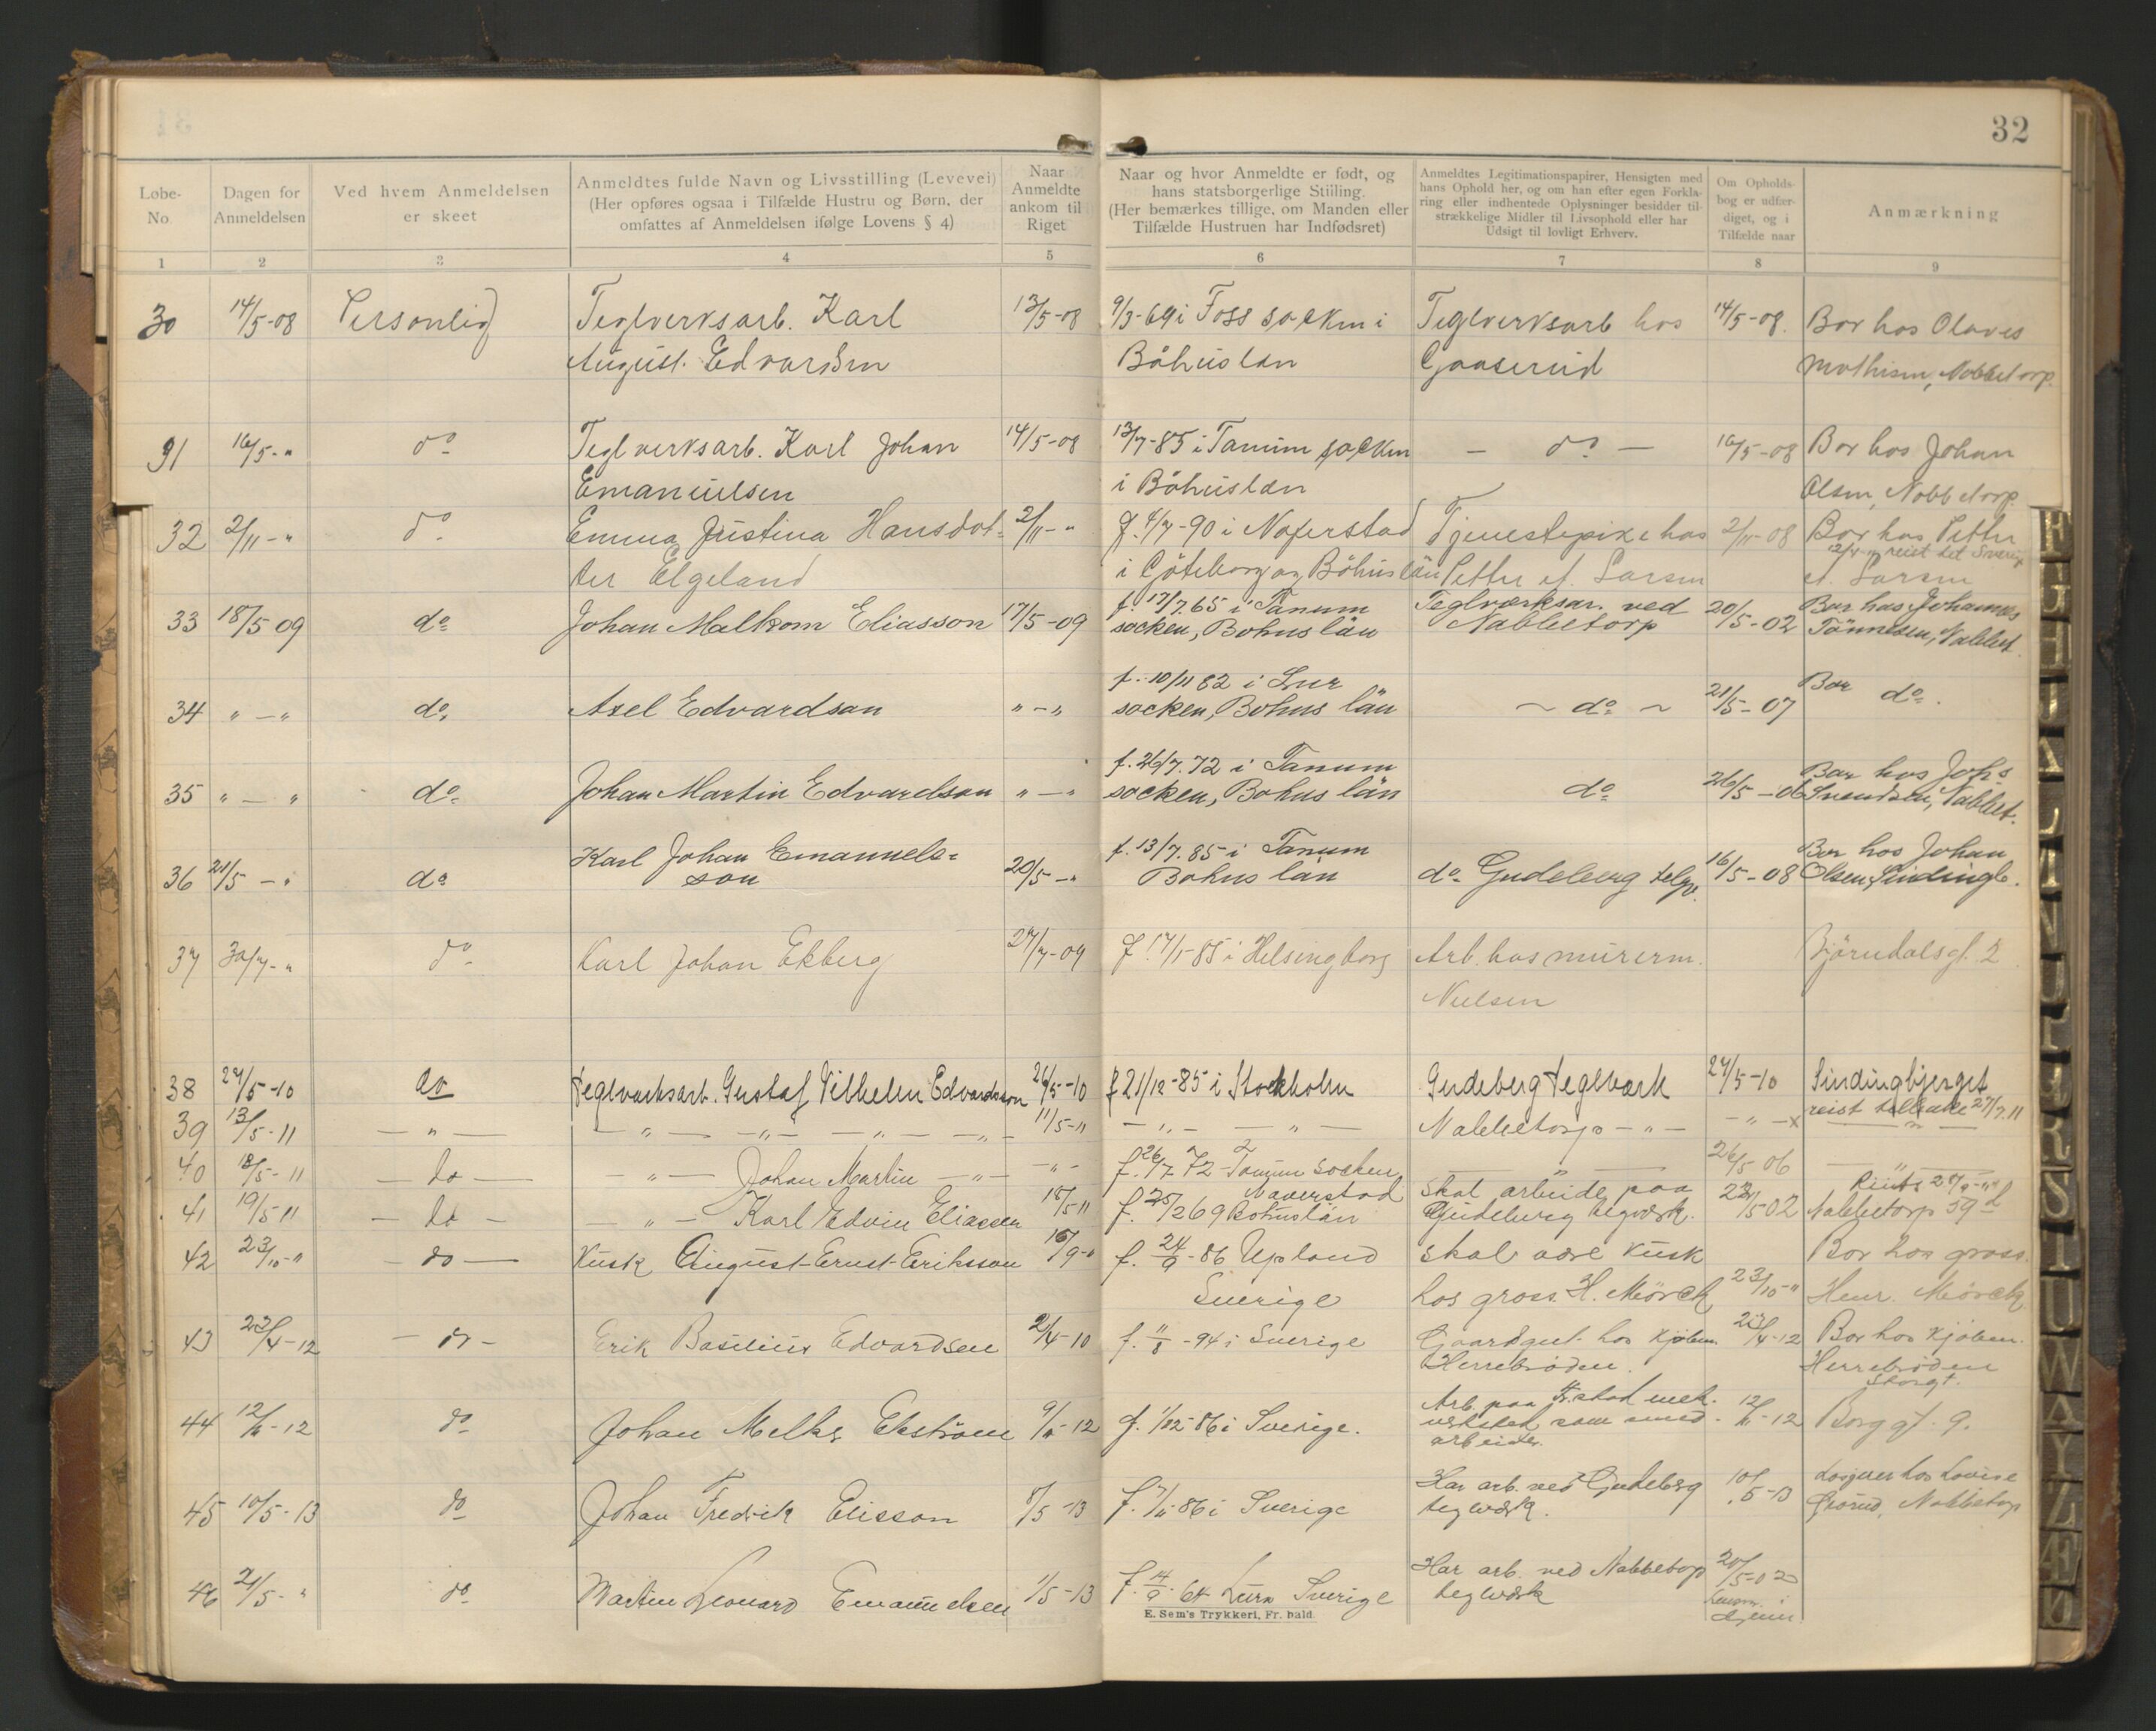 32
Løbe-No
Dagen for Anmeldelsen
Ved hvem Anmeldelsen er skeet
Anmeldtes fulde Navn og Livsstilling (Levevei) (Her opføres ogsaa i Tilfælde Hustru og Børn, der omfattes af Anmeldelsen ifølge Lovens § 4)
Naar Anmeldte ankom til Riget
Naar og hvor Anmeldte er født, og hans statsborgerlige Stiiling. (Her bemærkes tillige, om Manden eller Tilfælde Hustruen har Indfødsret)
Anmeldtes Legitimationspapirer, Hensigten med hans Ophold her, og om han efter egen Forklaring eller indhentede Oplysninger besidder tilstrækkelige Midler til Livsophold eller har Udsigt til lovligt Erhverv.
Om Opholdsbog er udfærdiget, og i Tilfælde naar
Anmærkning
1 2 3 4 5 6 7 8 9
30 14/5-08 Personlig Teglverksarb. Karl 13/5-08 9/3-69 i Foss socken i Teglverksarb hos 14/5-08. Bor hos Olaves
August. Edvardsen Båhuslän Gaaserud Mathisen, Nabbetorp.
31 16/5-" do Teglverksarb. Karl Johan 14/5-08 13/7-85 i Tanum socken - do - 16/5-08 Bor hos Johan
Emanuelsen i Båhuslän Olsen, Nabbetorp
32 2/11-" do Emma Justina Hansdot- 2/11-" f. 4/7-90 i Naferstad Tjenestepike hos 2/11-08 Bor hos Petter
ter Elgeland i Göteborg og Båhus län Petter ef. Larsen ef. Larsen
33 18/5 09 do Johan Malkom Eliasson 17/5-09 f. 17/7.65 i Tanum Teglverksar. ved 20/5-02 Bor hos Johannes
socken, Bohus län Nabbetorp Tønnesen, Nabbet.
34 " - " do Axel Edvardson " - " f. 10/11 82 i Lur ~ do ~ 21/5-07 Bor do.
socken, Bohus län
35 " - " do Johan Martin Edvardson " - " f. 26/7.72 i Tanum do 26/5-06 Bor hos Johs
socken, Bohus län Svendsen, Nabbet.
36 21/5 - " do Karl Johan Emanuels- 20/5-" f. 13/7.85 i Tanum do Gudeberg telgv. 16/5-08 Bor hos Johan
son Bohus län Olsen, Sindingb.
37 30/7-" do Karl Johan Ekberg 27/7-09 f 17/1-85 i Helsingborg Arb. hos murerm. Bjørndalsgt. 2
Nielsen
38 27/5-10 do Teglverksarb. Gustaf Vilhelm Edvardsson 26/5-10 f 21/12-85 i Stockholm Gudeberg teglværk 27/5-10 Sindingbjerget
39 13/5-11 - " - - " - - " - - " - - " - 11/5-11 - " - - " - Nabbetorp - " - - " - x reist tilbake 27/7.11
40 18/5-11 - do - - " - Johan Martin - " - - " - f. 26/7 72 Tanum socken - " - 26/5 06 - " -
41 19/5 11 - do - - " - Karl Edvin Eliassen 18/5 11 f. 25/2 69 Naverstad Bohuslän skal arbeide paa Gudeberg teglværk. 22/5-02 Nabbetorp 59 d
42 23/10-" - do - Kusk August Ernst Eriksson f. 24/9-86 Upland skal være kusk Bor hos gross.
Sverige hos gross. H. Mørck 23/10-" Henr. Mørck
43 23/4-12 - do - Erik Basilius Edvardsen 2/4-10 f. 11/8-94 i Sverige Gaardsgut hos Kjøbm. 23/4-12 Bor hos Kjøbm.
Herrebrøden. Herrebrøden
Storgt.
44 12/11-12 do Johan Melker Ekstrøm 9/11-12 f. 1/12-86 i Sverige. Arb. paa Fr.stad mek. 12/11-12 Borggt. 9.
verksted som smed-
arbeider.
45 10/5-13 do Johan Fredrik Elisson 8/5-13 f. 7/11-86 i Sverige Har arb. ved Gudeberg 10/5-13 Losjerer hos Lovise
teglværk. Grorud, Nabbetorp
46 21/5-" do Martin Leonard Emanuelsen 1/5-13 f. 14/9-64 Lurs Sverige Har arb. ved Nabbetorp 20/5-02
teglværk
E. Sem's Trykkeri, Fr. hald.
F G H I K L M N O P R S T U W A Y Z Æ Ø